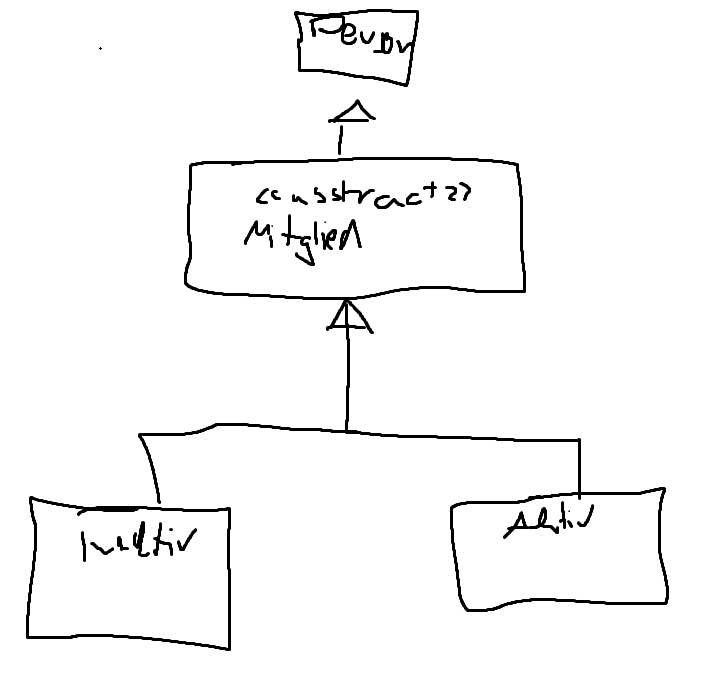 Person
<<abstract>>
Mitglied
Inaktiv
Aktiv